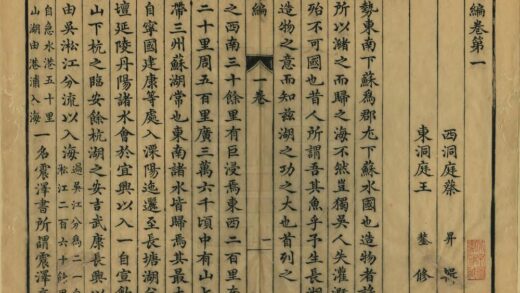 編卷第一
西洞庭蔡 昇
東洞庭王 鏊 修
勢東南下蘇爲郡尤下蘇水國也造物者
所以瀦之而歸之海不然豈獨吳人失灌
殆不可國也昔人所謂吾其魚乎予生長湖
造物之意而知茲湖之功之大也首列之
編 一卷 一
之西南三十餘里有巨浸焉東西二百里
二十里周五百里廣三萬六千頃中有山
帶三州蘇湖常也東南諸水皆歸焉其最
自寧國建康等處入溧陽迤邐至長塘湖
壇延陵丹陽諸水會於宜興以入一自宣歙
山下杭之臨安餘杭湖之安吉武康長興以
由吳淞江分流以入海
過吳江分爲二一自
淞江二百六十餘里
自急水港五十里
山湖由港浦入海
一名震澤書所謂震澤